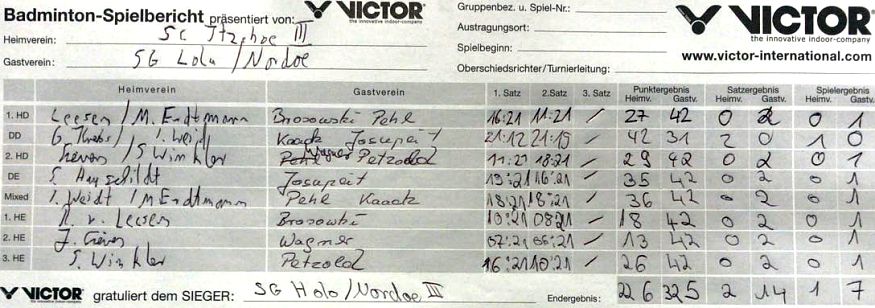 Badminton-Spielbericht präsentiert von: VICTOR the innovative indoor-company
Gruppenbez. u. Spiel-Nr.:
Heimverein: SC Itzehoe III
Austragungsort:
VICTOR the innovative indoor-company
Gastverein: SG Lola / Nordoe
Spielbeginn:
www.victor-international.com
Oberschiedsrichter/Turnierleitung:
Heimverein Gastverein 1. Satz 2. Satz 3. Satz Punktergebnis Heimv. Gastv. Satzergebnis Heimv. Gastv. Spielergebnis Heimv. Gastv.
1. HD Leesen / M. Erdtmann Brosowski Pehl 16:21 11:21 / 27 42 0 2 0 1
DD G. Krebs / Kaack Josupeit 21:12 21:19 / 42 31 2 0 1 0
2. HD Cieven / S. Winkler Wagner Petzold 11:21 18:21 / 29 42 0 2 0 1
DE S. Josupeit 19:21 16:21 / 35 42 0 2 0 1
Mixed Weidt / M Erdtmann Pehl Kaack 18:21 18:21 / 36 42 0 2 0 1
1. HE v. Leesen Brosowski 10:21 08:21 / 18 42 0 2 0 1
2. HE J. Cieven Wagner 07:21 06:21 / 13 42 0 2 0 1
3. HE S. Winkler Petzold 16:21 10:21 / 26 42 0 2 0 1
VICTOR gratuliert dem SIEGER: SG Holo / Nordoe II Endergebnis: 226 325 2 14 1 7